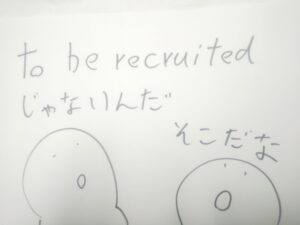 to be recruited
じゃないんだ
そこだな